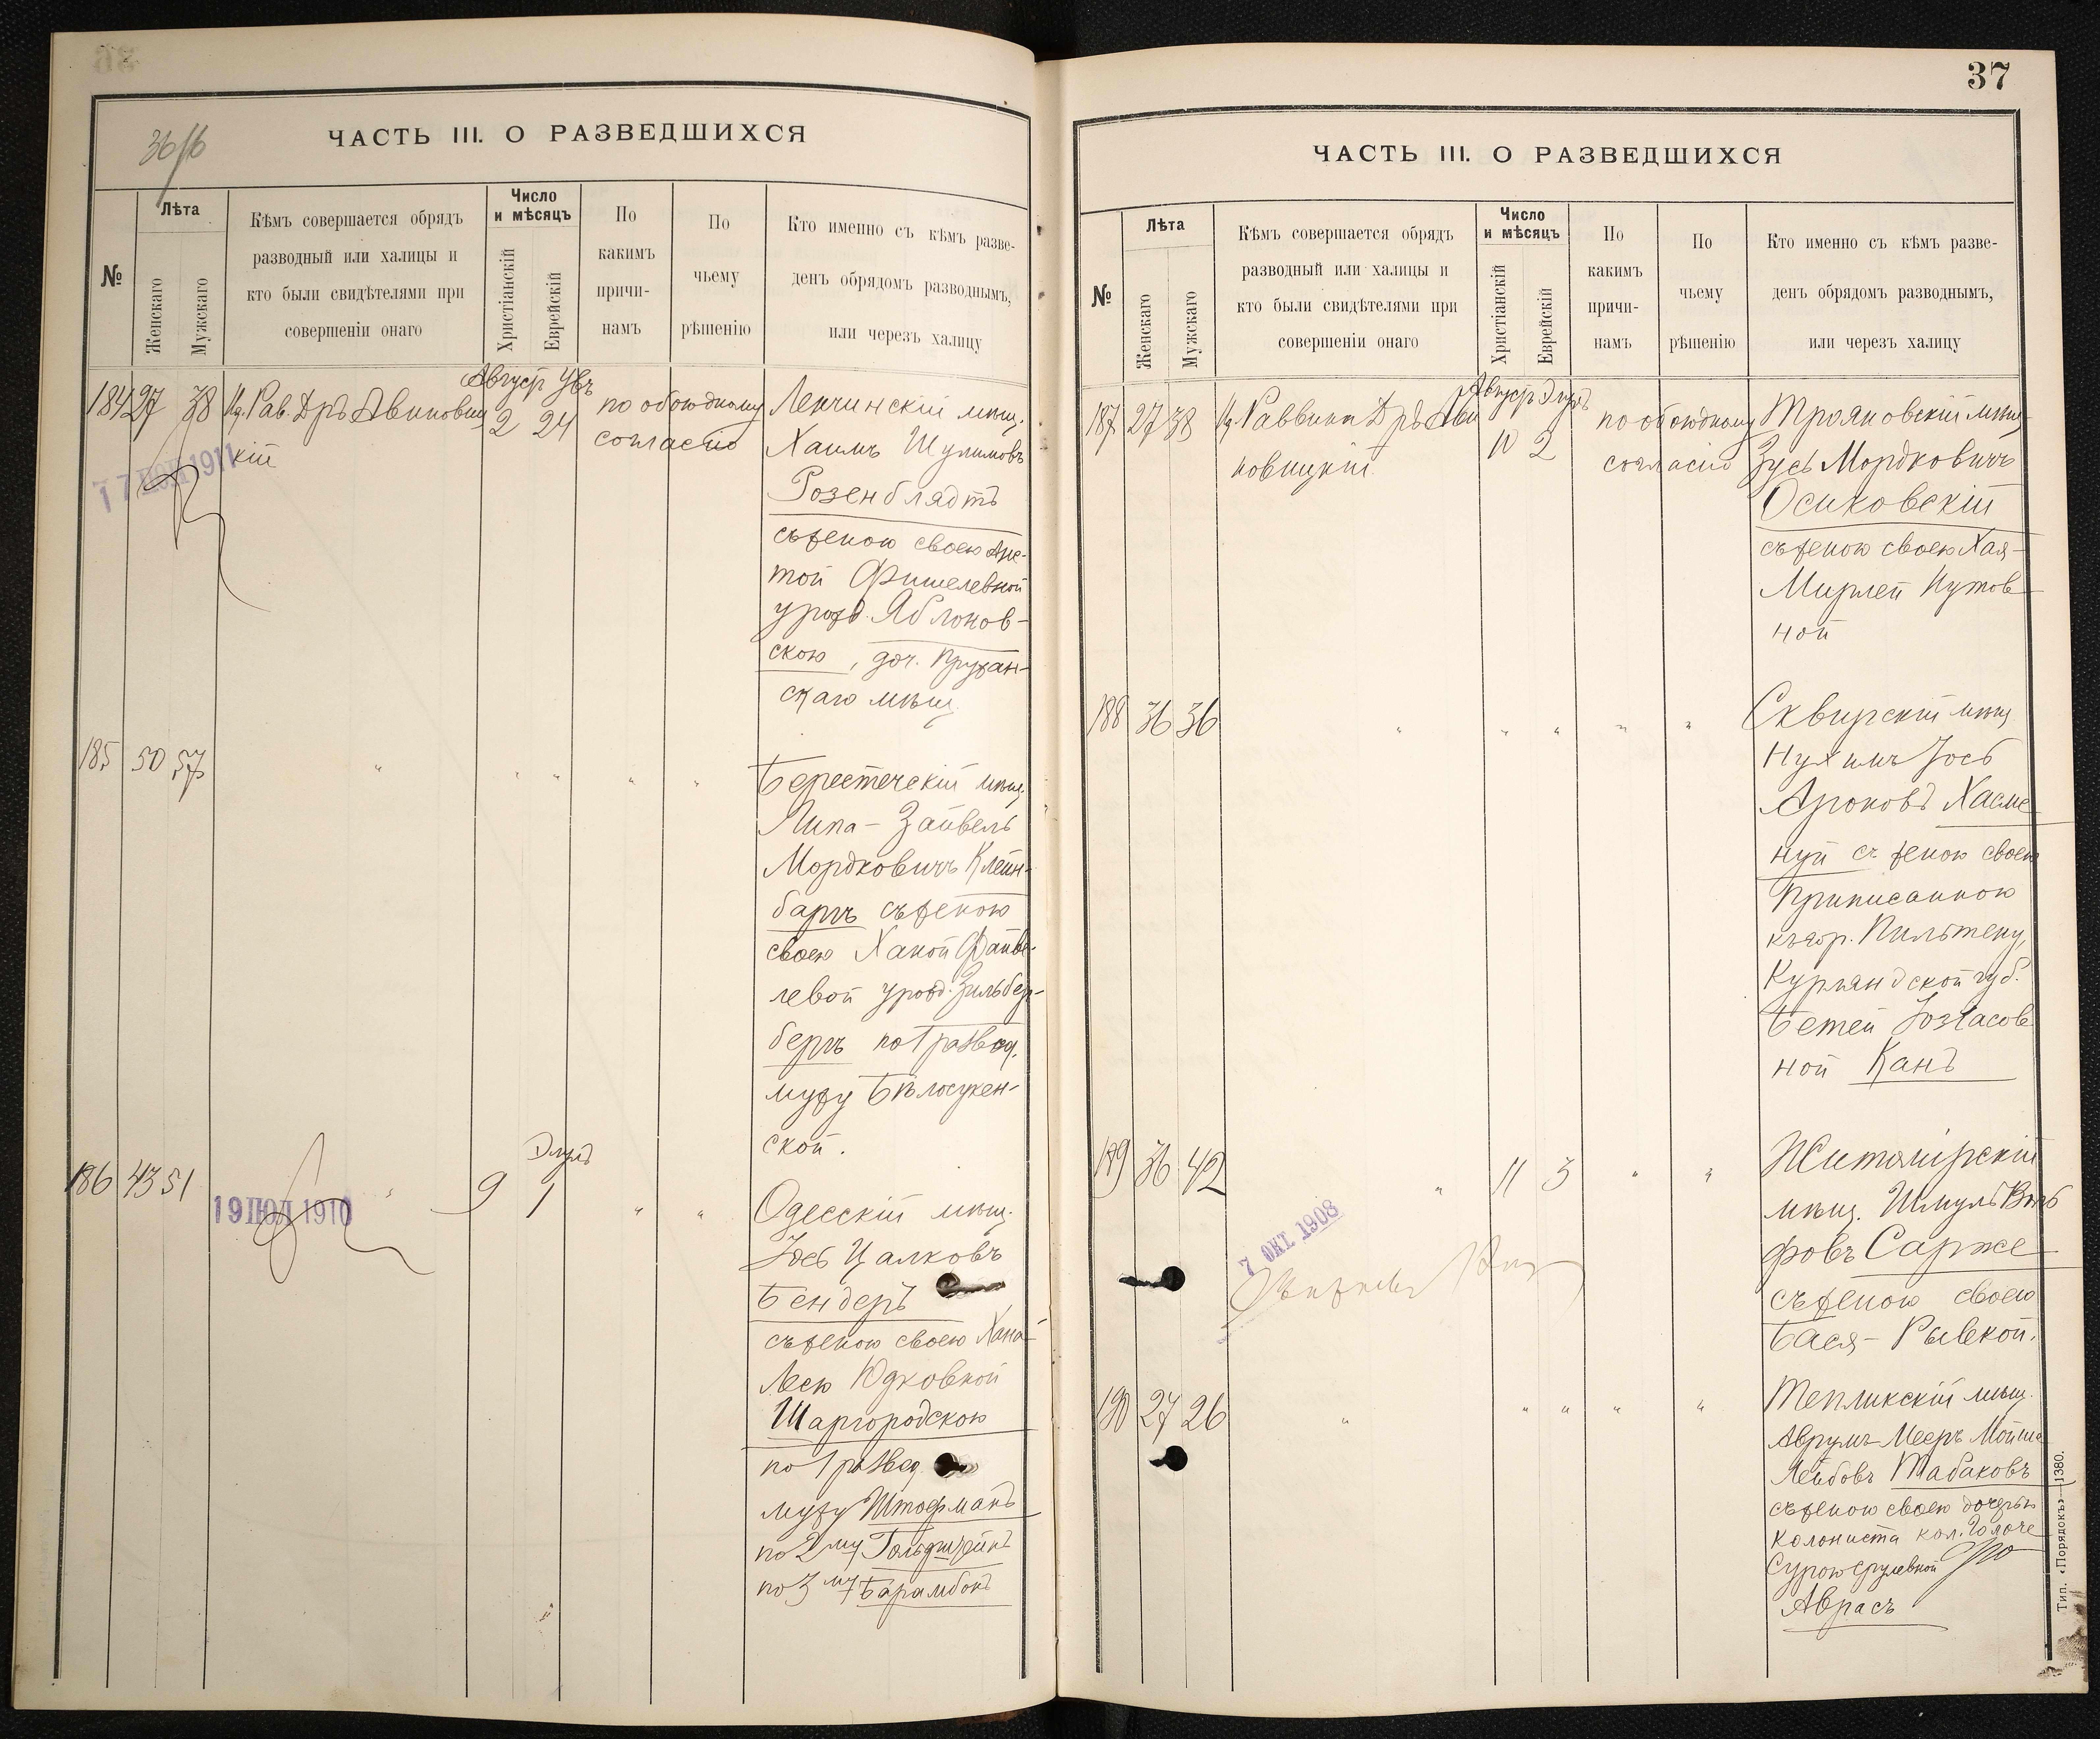 36/16
ЧАСТЬ III. О РАЗВЕДШИХСЯ
№
Лѣта
Женскаго
Мужскаго
Кѣмъ совершается обрядъ
разводный или халицы и
кто были свидѣтелями при
совершеніи онаго
Число
и мѣсяцъ
Христіанскій
Еврейскій
По
какимъ
причи-
намъ
По
чьему
рѣшенію
Кто именно съ кѣмъ разве-
денъ обрядомъ разводнымъ,
или черезъ халицу
184 27 38
Рав. Дръ Авиновиц
кій
Август
2 24
по обоюдному
согласію
Ленчинскій мѣщ.
Хаимъ Шулимовъ
Розенблядтъ
съ женою своею Ане-
той Фишелевной
урожд. Яблонов-
скою, доч. Пружан-
скаго мѣщ.
17 ИЮН 1911
185 50 57
" " " " "
Берестечскій мѣщ.
Липа-Зайвель
Мордковичъ Клейн-
баргъ съ женою
своею Ханой Файве-
левой урожд. Зильбер-
бергъ по 1 развед.
мужу Бѣлоцукен-
ской.
186 43 51
"
9
Элулъ
1
" "
19 ІЮЛ 1910
Одесскій мѣщ.
Іось Цалковъ
Бендеръ
съ женою своею Хана-
Лею Юдковной
Шаргородскою
по 1 развед
мужу Штофманъ
по 2му Гольдштейнъ
по 3му Барамбонъ
37
ЧАСТЬ III. О РАЗВЕДШИХСЯ
№
Лѣта
Женскаго
Мужскаго
Кѣмъ совершается обрядъ
разводный или халицы и
кто были свидѣтелями при
совершеніи онаго
Число
и мѣсяцъ
Христіанскій
Еврейскій
По
какимъ
причи-
намъ
По
чьему
рѣшенію
Кто именно съ кѣмъ разве-
денъ обрядомъ разводнымъ,
или черезъ халицу
187 27 38
Раввинъ Дръ Ави
новицкій
Август Элулъ
10 2
по обоюдному
согласію
Трояновскій мѣщ.
Зусь Мордковичъ
Осиковскій
съ женою своею Хая-
Мирлей Нутов
ной
188 36 36
" " " " "
Сквирскій мѣщ.
Нухимъ Іось
Ароновъ Хасме
нуй съ женою своею
Приписанною
къ гор. Пильтену,
Курляндской губ.
Бетей Іозеасов
ной Канъ
189 36 42
" 11 3 " "
7 ОКТ. 1908
Житомірскій
мѣщ. Шмуль Воль
фовъ Сарже
съ женою своею
Бася-Рывкой.
190 27 26
" " " " "
Тепликскій мѣщ.
Аврумъ-Мееръ Мойше
Лейбовъ Табаковъ
съ женою своею дочерью
колониста кол.
Сурою Срулевной
Аврасъ
Тип. «Порядокъ»—1380.